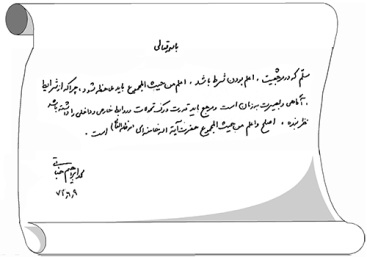 باسمه تعالی
مسلم که در مرجعیت، اعلم بدون شرط باشد. اعلم من حیث المجموع باید ملاحظه شود، چرا که از شرایط
آگاهی و بصیرت به زمان است و مرجع باید قدرت درک تحولات و روابط خارجی و داخلی را داشته باشد
نظر بنده، اصلح و اعلم من حیث المجموع حضرت آیة الله خامنه‌ای است.
محمد ابراهیم جناتی